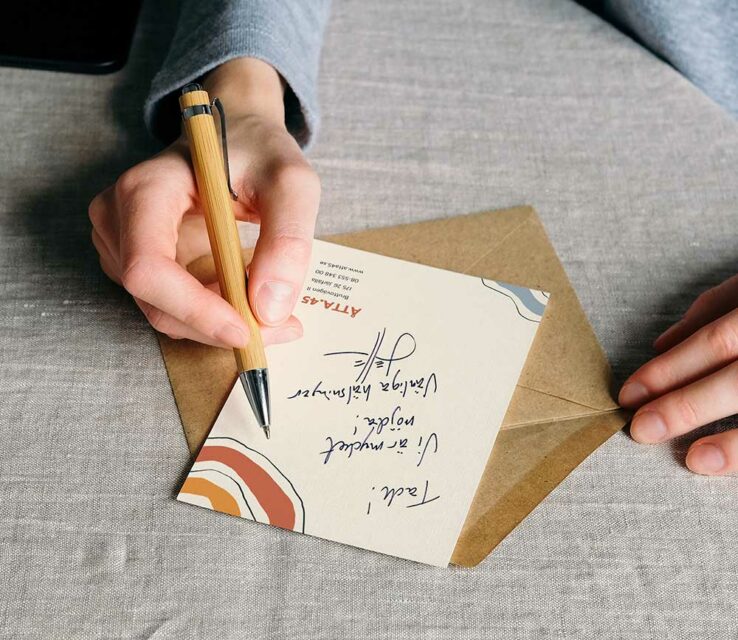 Tack!
Vi är mycket
nöjda!
Vänliga hälsningar
ÅTTA.45
Bruttovägen 11
175 26 Järfälla
08-553 348 00
www.atta45.se